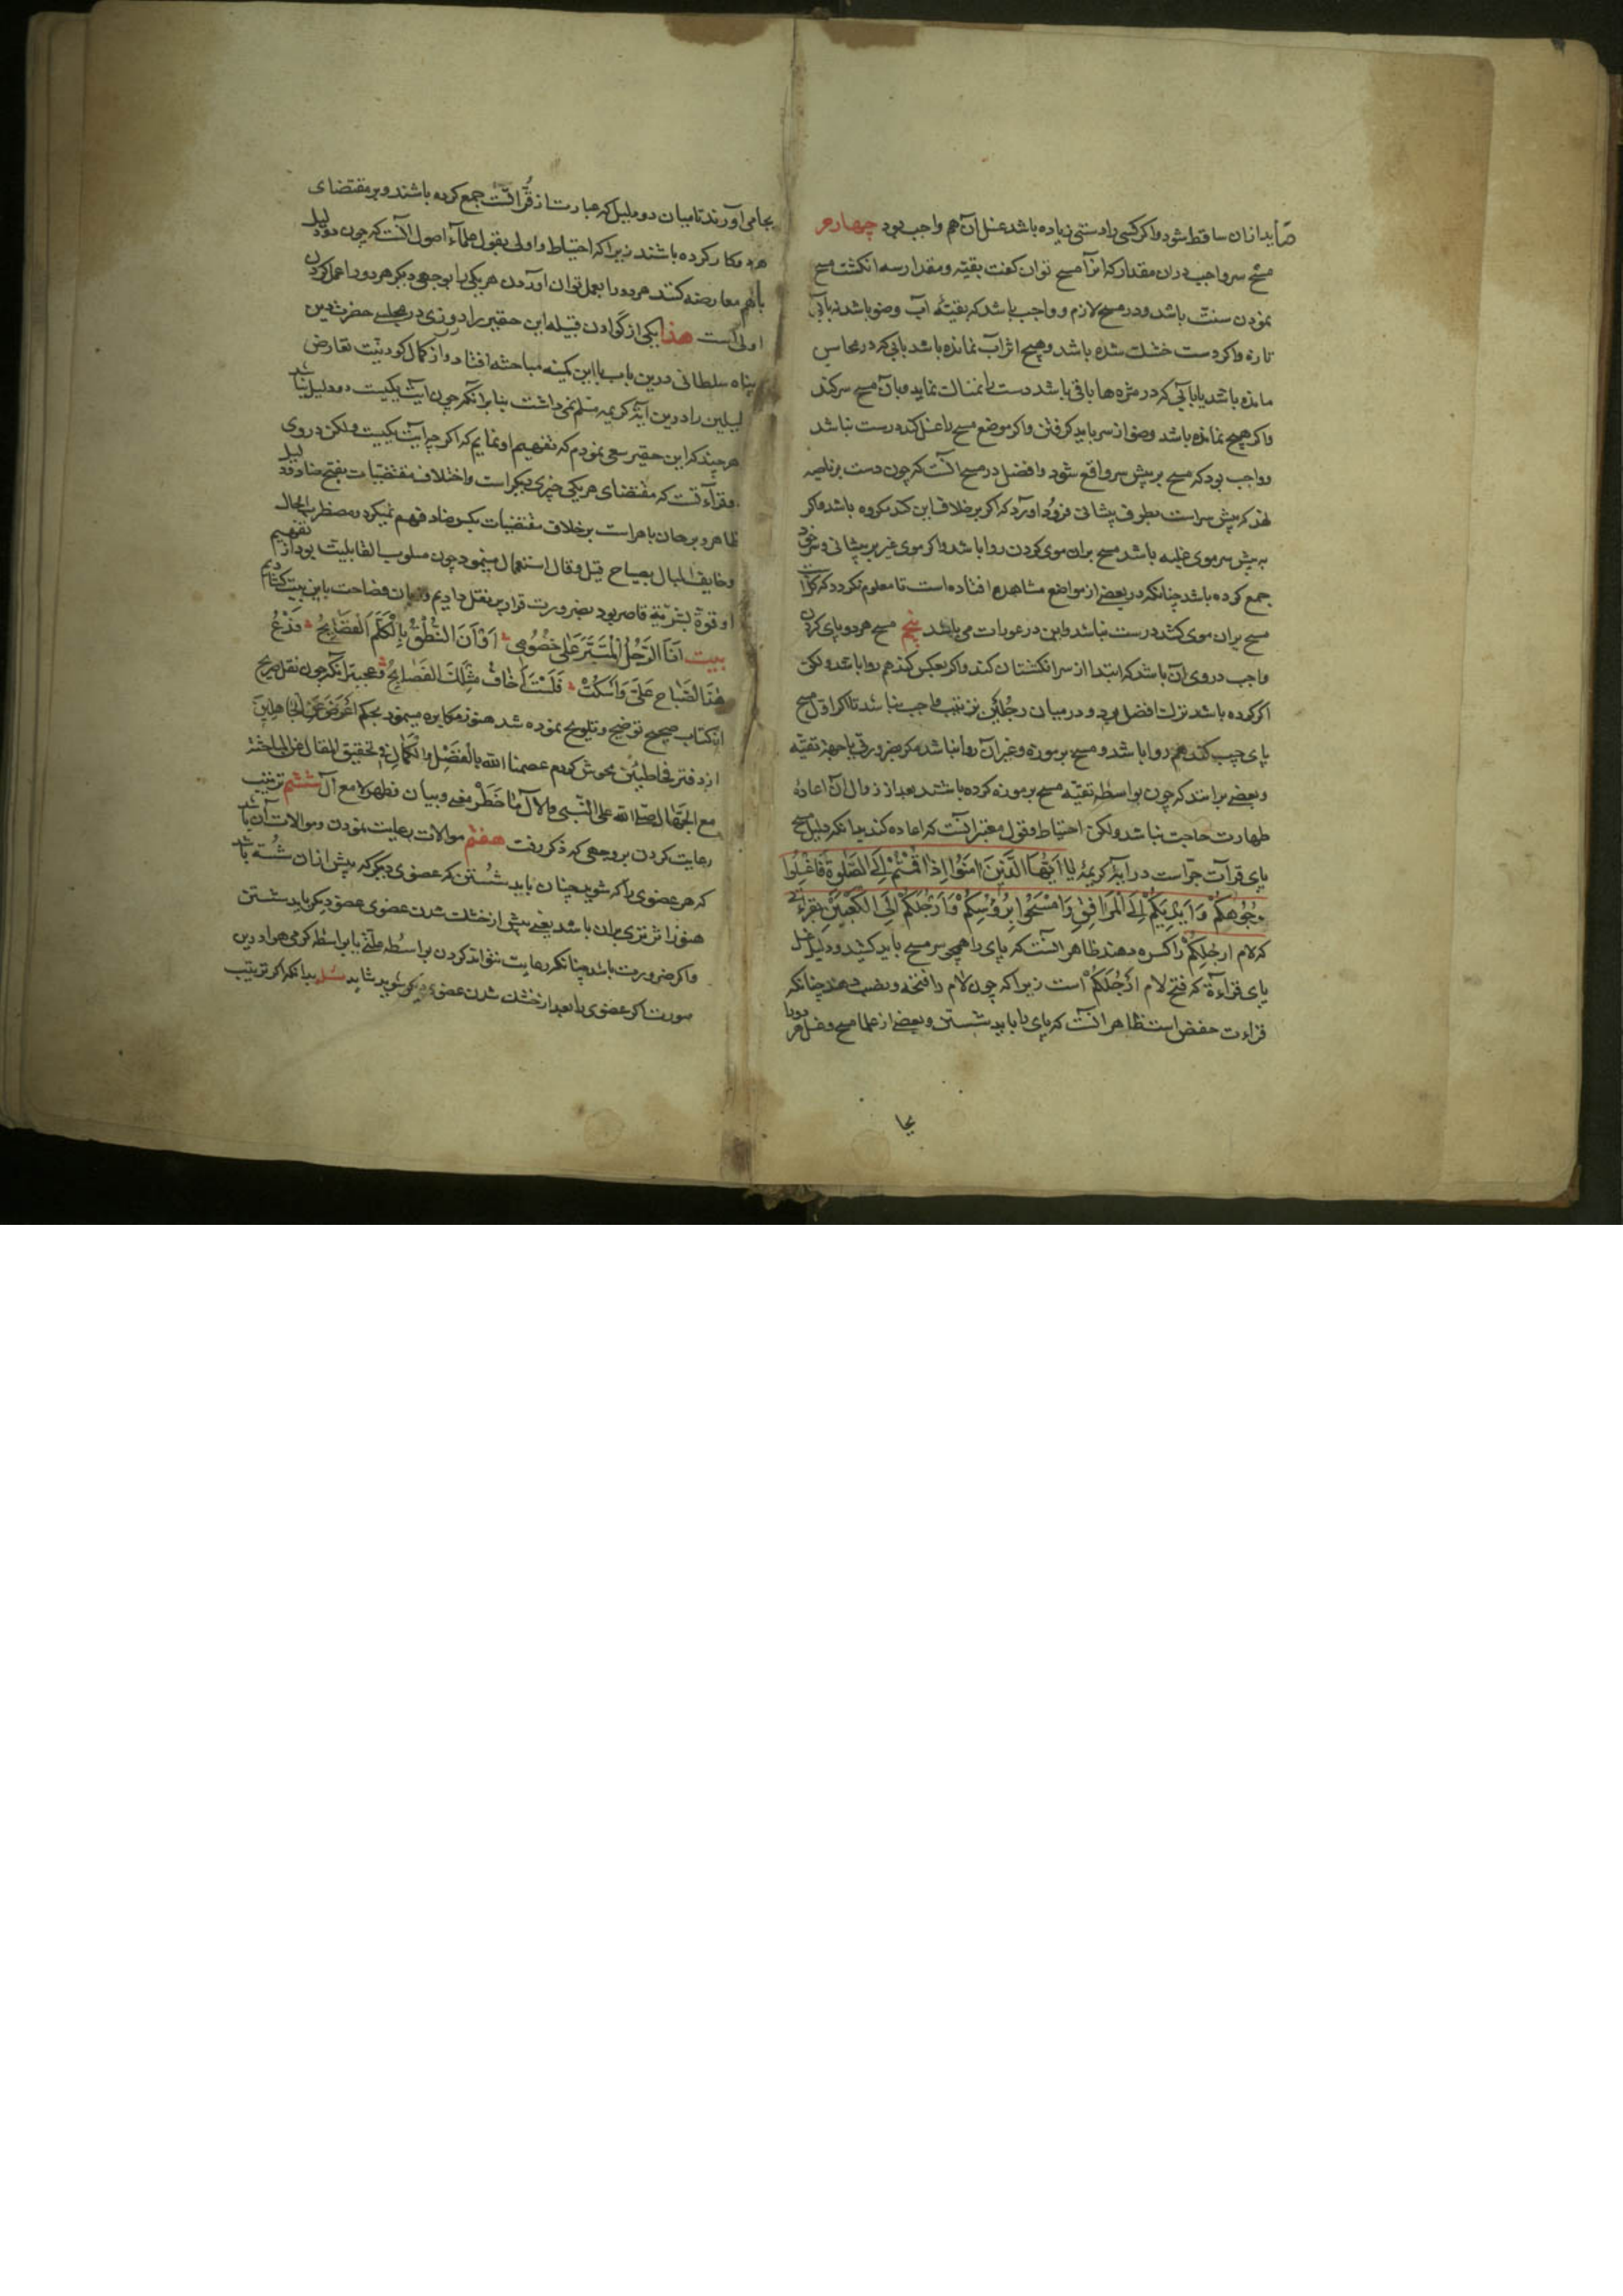 صابدازان ساقط شود واکر کسی را دستی زیاده باشد غسل آن هم واجب بود چهارم
مسح سر واجب دران مقدار که انرا مسح توان کفت بقیته ومقدار سه انکشت مسح
نمودن سنت باشد ودر مسح لازم وواجب باشد که بقیتهٔ آب وضو باشد نه بآبی
تازه واکر دست خشك شده باشد وهیچ اثر آب نمانده باشد بآبی که در محاسن
مانده باشد یا بآبی که در مژه ها باقی باشد دست را نمناك نماید وبآن مسح سر کند
واکر هیچ نمانده باشد وضو از سر باید کرفتن واکر موضع مسح را غسل کند درست نباشد
وواجب بود که مسح بر پیش سر واقع شود وافضل در مسح آنست که چون دست بر ناصیه
نهد که پیش سر است بطرف پیشانی فرود آورد که اکر برخلاف این کند مکروه باشد واکر
به پیش سر موی غلبه باشد مسح بران موی کردن روا باشد واکر موی غیر بر پیشانی وسر خود
جمع کرده باشد چنانکه در بعضی از مواضع مشاهده افتاده است تا معلوم نکردد که
مسح بران موی کشد درست نباشد واین در عورات می باشد پنجم مسح هر دو پای کردن
واجب در وی آن باشد که ابتدا از سر انکشتان کند واکر بعکس کند هم روا باشد ولکن
اکر کرده باشد ترك افضل بود ودر میان رجلین ترتیب واجب نباشد تا اکر اول مسح
پای چپ کند هم روا باشد ومسح بر موزه وغیر آن روا نباشد مکر بضرورتی یا جهة تقیه
وبعضی برانند که چون بواسطهٔ تقیه مسح بر موزه کرده باشند بعد از زوال آن اعادهٔ
طهارت حاجت نباشد ولکن احتیاط وقول معتبر آنست که اعاده کند بدانکه دلیل مسح
پای قرآت جر است در آیهٔ کریمهٔ یا اَیُّهَا الَّذِینَ اٰمَنُوا اِذَا قُمْتُمْ اِلَی الصَّلٰوةِ فَاغْسِلُوا
وُجُوهَکُمْ وَ اَیْدِیَکُمْ اِلَی الْمَرَافِقِ وَامْسَحُوا بِرُؤُسِکُمْ وَ اَرْجُلَکُمْ اِلَی الکَعْبَیْنِ بقرائتی
که لام ارجلِکُمْ را کسره دهند ظاهر آنست که پای را همچو سر مسح باید کشید ودلیل غسل
پای قراءة که فتح لام ارْجُلَکُمْ است زیرا که چون لام را فتحه ونصب دهند چنانکه
قراءت حفص است ظاهر آنست که پای را باید شستن وبعضی از علما مسح وغسل هر دورا
بجا
بجا می آورند تا میان دو دلیل که عبارت از قُرّاآتست جمع کرده باشند وبر مقتضای
هر دو کار کرده باشند زیرا که احتیاط واولی بقول علمآء اصول آنست که چون دو دلیل
باهم معارضه کنند هر دو را بعمل توان آوردن هر یکی را بوجهی دیکر هر دو را عمل کردن
اولی است هذا یکی از کوادن قبیلهٔ این حقیر را روزی در مجلس حضرت دین
پناه سلطانی درین باب با این کمینه مباحثه افتاد واز کمال کودنیت تعارض
لیلین را درین آیهٔ کریمه مسلم نمی داشت بنابر آنکه چون آیت یکیست دو دلیل نباشد
هر چند که این حقیر سعی نمودم که تفهیم او نمایم که اکر چه آیت یکیست ولکن در وی
دو قرآءتست که مقتضای هر یکی چیزی دیکر است واختلاف مقتضیات بفتح ضاد دلیل
ظاهر وبرهان باهر است بر خلاف مقتضیات بکسر ضاد فهم نمیکرد ومضطرب الحال
وخایف البال بصیاح قیل وقال استعمال مینمود چون مسلوب القابلیت بود از تفهیم
او قوة بشریة قاصر بود بضرورت قرار بر نقل دادیم وزبان فصاحت باین بیت کشادیم
بیت اَنَا الرَّجُلُ الْمُسَتَّرُ عَلٰی خُصُومِی اَوْاَنَ النُّطْقُ بِالْکَلَمِ الْفَصٰایِحِ فَدَعْ
هٰذَا الصَّیاح عَلَیَّ وَاسْکُتْ فَلَسْتُ اَخٰافُ مِنْ تِلْكَ الفَصٰایِحْ وعجبتر آنکه چون نقل صریح
از کتاب صحیح توضیح وتلویح نموده شد هنوز مکابره مینمود بحکم اَعْرِضْ عَنِ الْجَاهِلِینَ
از دفتر مخاطبین محوش کردم عصمنا الله بالْفَضْلِ والْکَمٰالِ وتحقیق المقال عن المباحثة
مع الجهّال صلّی الله علی النَّبی والآل مٰا خَطَرَ معنی وبیان وظهر لامع آل ششم ترتیب
رعایت کردن بر وجهی که ذکر رفت هفتم موالات رعایت نمودن وموالات آن باشد
که هر عضوی را که شوید چنان باید شُستن که عضوی دیکر که پیش ازان شُسته باشد
هنوز اثر تری بران باشد یعنی پیش از خشك شدن عضوی عضو دیکر باید شستن
واکر ضرورت باشد چنانکه رعایت نتواند کردن بواسُطه علّتی یا بواسطه کرمی هوا درین
صورت اکر عضوی را بعد از خشك شدن عضوی دیکر شوید شاید بدانکه اکر ترتیب